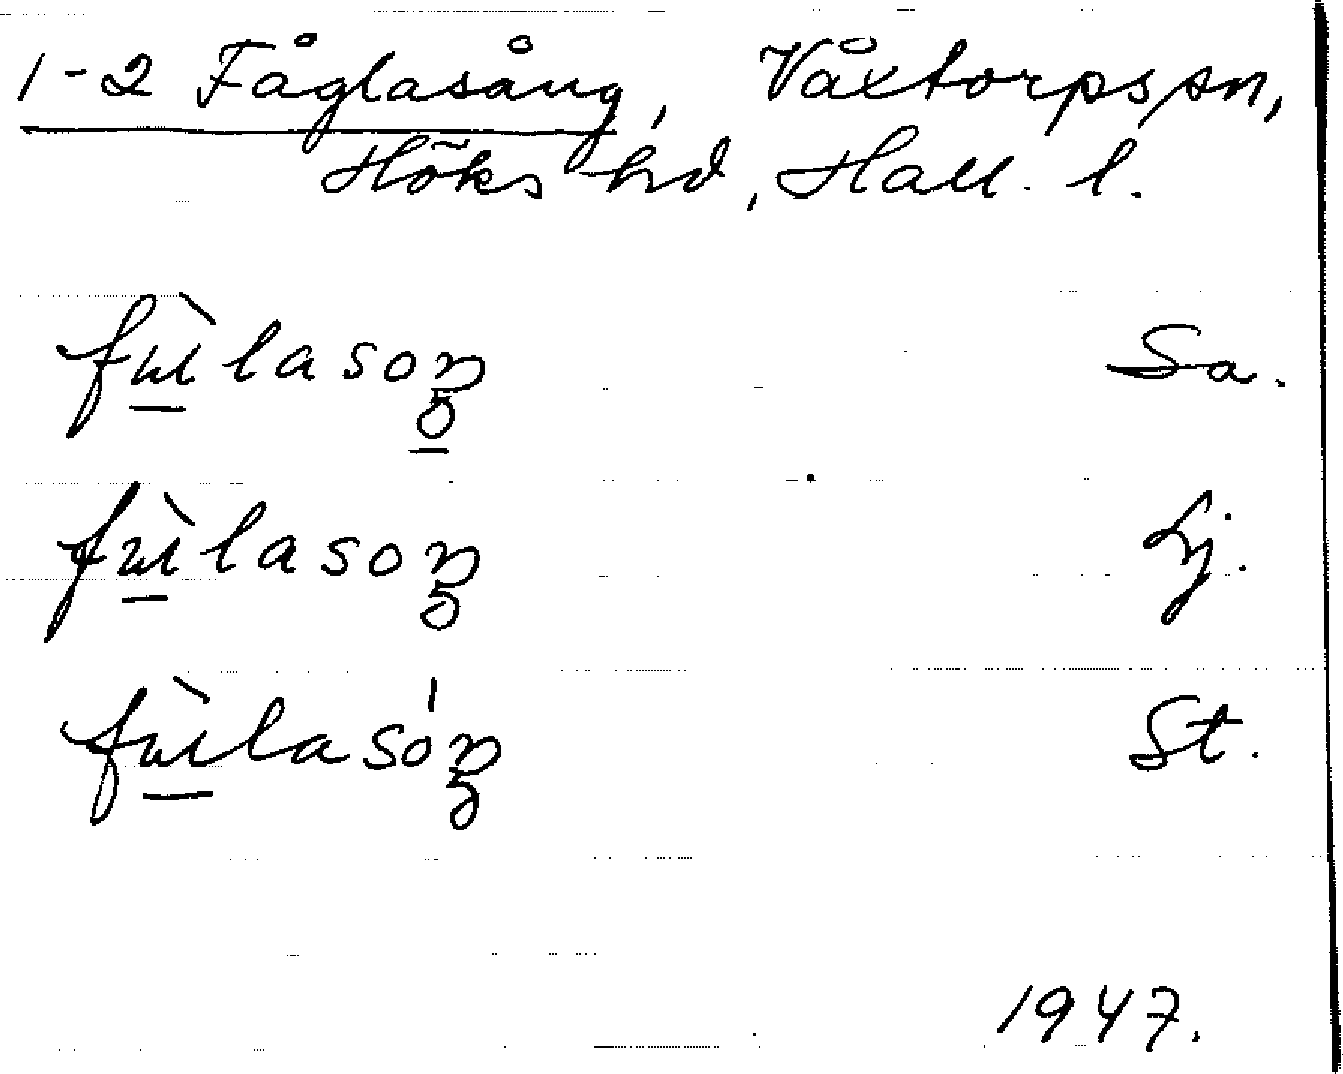 1-2 Fåglasång, Våxtorps sn,
Höks hd, Hall. l.
fùlasoŋ Sa.
fùlasoŋ Lj.
fùlasóŋ St.
1947.